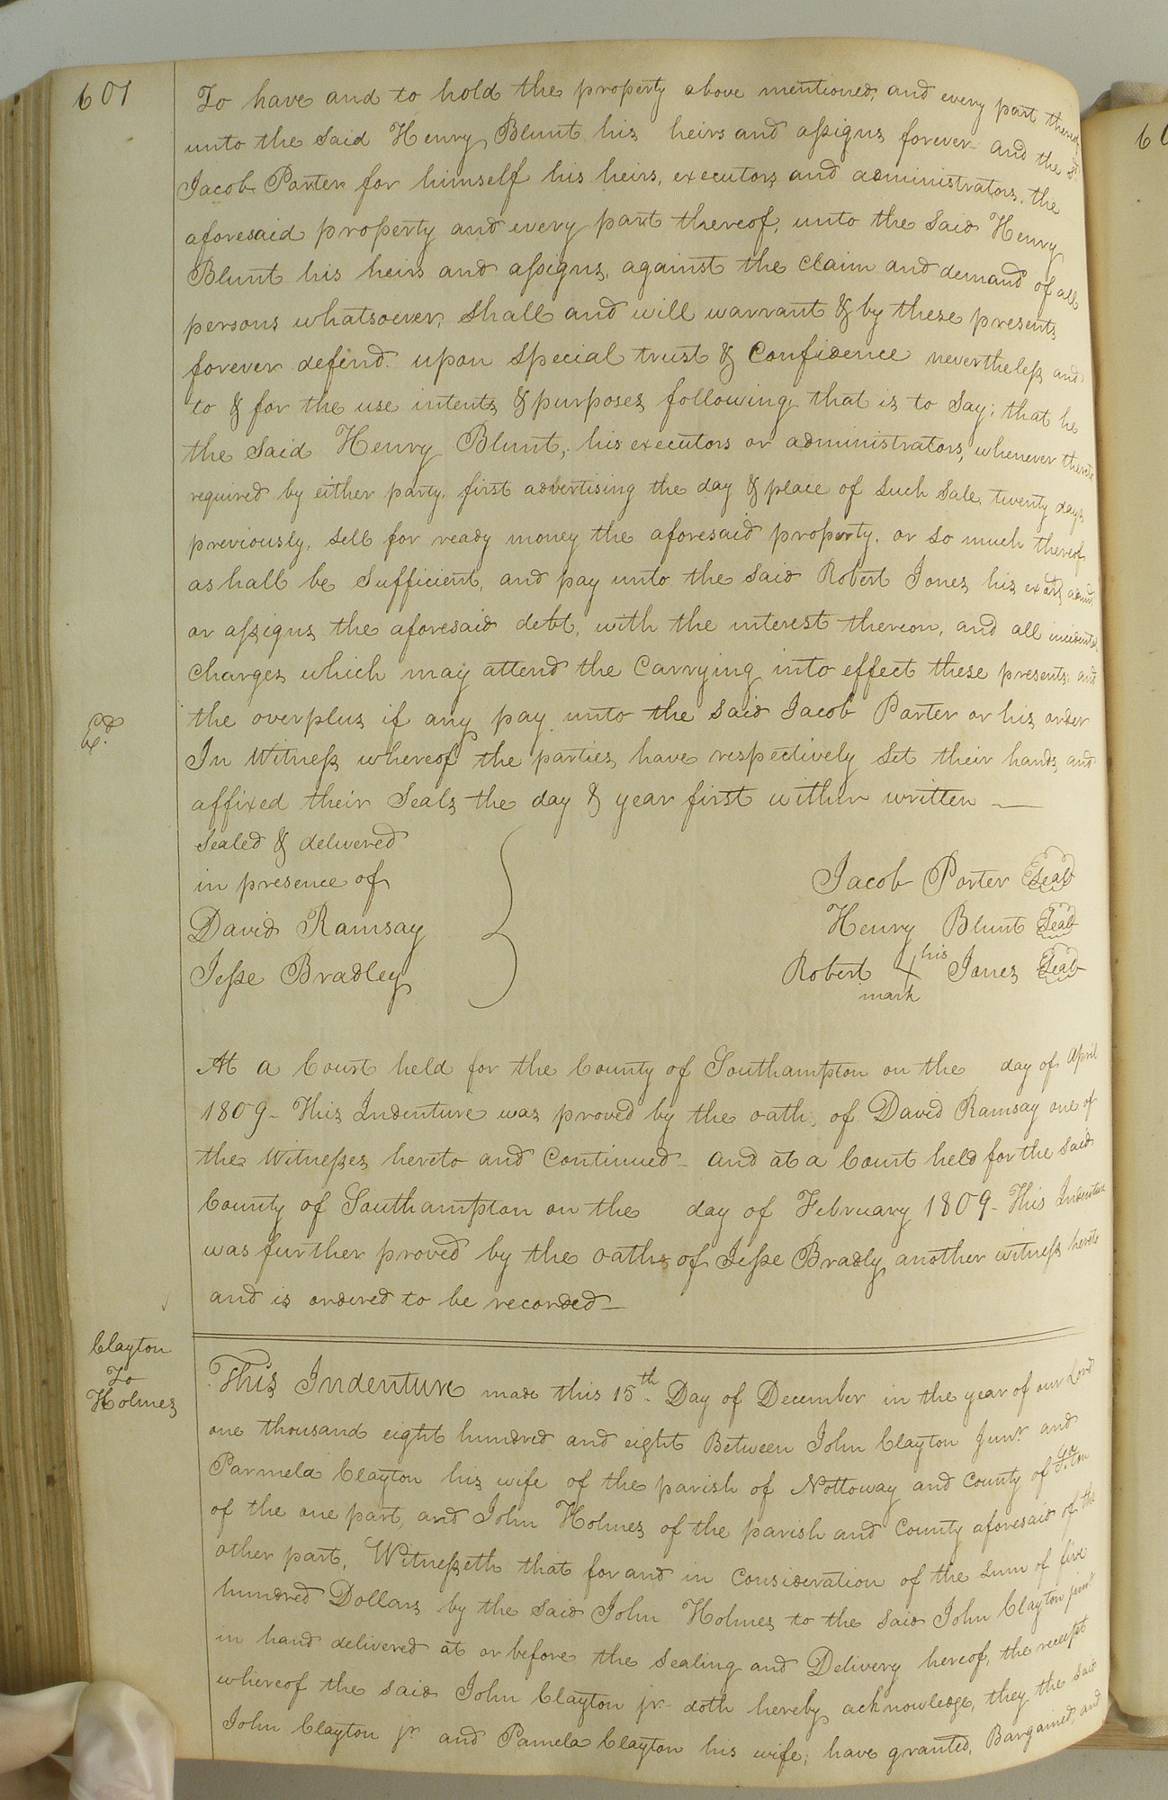 601
To have and to hold the property above mentioned, and every part thereof
unto the said Henry Blunt his heirs and assigns forever and the sd
Jacob Porter for himself his heirs, executors and administrators, the
aforesaid property and every part thereof, unto the said Henry
Blunt his heirs and assigns, against the claim and demand of all
persons whatsoever, shall and will warrant & by these presents
forever defend. upon special trust & Confidence nevertheless and
to & for the use intents & purposes following that is to say; that he
the said Henry Blunt, his executors or administrators, whenever thereto
required by either party, first advertising the day & place of such sale, twenty days
previously, sell for ready money the aforesaid property, or so much thereof
as hall be sufficient, and pay unto the said Robert Jones his exors admrs
or assigns the aforesaid debt, with the interest thereon, and all incidental
charges which may attend the carrying into effect these presents: and
the overplus if any pay unto the said Jacob Porter or his order
In Witness whereof the parties have respectively set their hands and
affixed their Seals the day & year first within written —
Sealed & delivered
in presence of
David Ramsay
Jesse Bradley
Jacob Porter Seal
Henry Blunt Seal
Robert his X mark Jones Seal
At a Court held for the County of Southampton on the day of April
1809 - This Indenture was proved by the oath, of David Ramsay one of
the Witnesses hereto and Continued - and at a Court held for the said
County of Southampton on the day of February 1809 - This Indenture
was further proved by the oaths of Jesse Bradly another witness hereto
and is ordered to be recorded —
Clayton
To
Holmes
This Indenture made this 15th Day of December in the year of our Lord
one thousand eight hundred and eight Between John Clayton Junr and
Parmela Clayton his wife of the parish of Nottoway and County of
of the one part, and John Holmes of the parish and County aforesaid of the
other part, Witnesseth that for and in consideration of the sum of five
hundred Dollars by the said John Holmes to the said John Clayton junr
in hand delivered at or before the sealing and Delivery hereof, the receipt
whereof the said John Clayton jr doth hereby acknowledge, they the said
John Clayton jr and Pamela Clayton his wife, have granted, Bargained, and